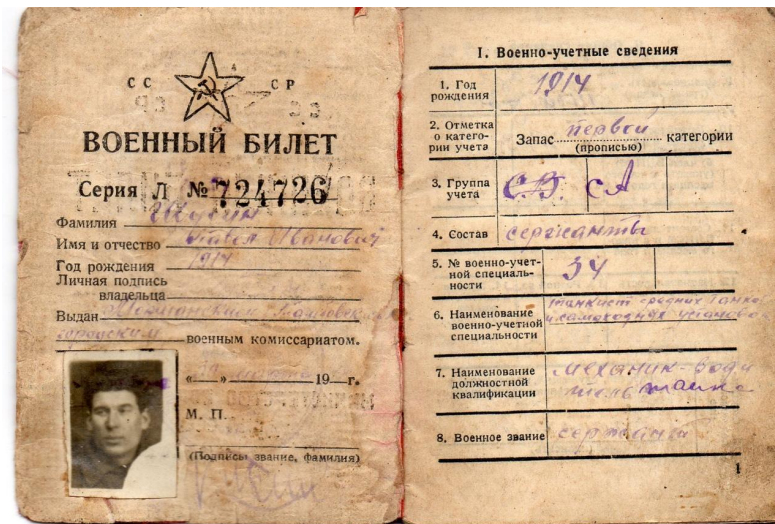 СС СР
ВОЕННЫЙ БИЛЕТ
Серия Л № 724726
Фамилия
Имя и отчество Павел Иванович
Год рождения 1914
Личная подпись
владельца
Выдан
городским военным комиссариатом.
« » 19 г.
М. П.
(Подпись, звание, фамилия)
I. Военно-учетные сведения
1. Год
рождения
1914
2. Отметка
о катего-
рии учета
Запас первой категории
(прописью)
3. Группа
учета
С.В. СА
4. Состав сержанты
5. № военно-учет-
ной специаль-
ности
34
6. Наименование
военно-учетной
специальности
танкист средних танков
и самоходных установок
7. Наименование
должностной
квалификации
механик-води
тель танка
8. Военное звание сержант
1